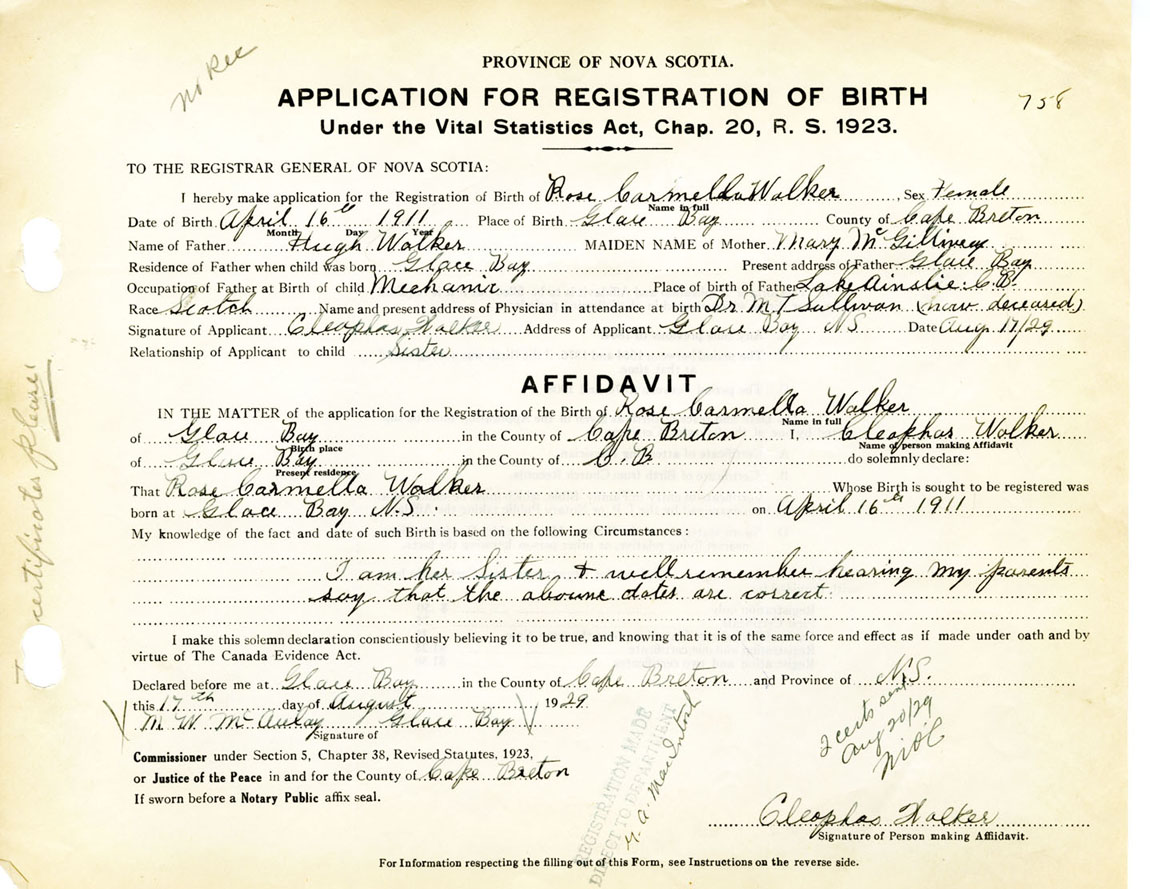 no Rec
PROVINCE OF NOVA SCOTIA.
APPLICATION FOR REGISTRATION OF BIRTH
758
Under the Vital Statistics Act, Chap. 20, R. S. 1923.
TO THE REGISTRAR GENERAL OF NOVA SCOTIA:
I hereby make application for the Registration of Birth of Rose Carmella Walker Sex Female
Name in full
Date of Birth April 16th 1911 Place of Birth Glace Bay County of Cape Breton
Month Day Year
Name of Father Hugh Walker MAIDEN NAME of Mother Mary McGillivey
Residence of Father when child was born Glace Bay Present address of Father Glace Bay
Occupation of Father at Birth of child Mechanic Place of birth of Father Lake Ainslie C.B.
Race Scotch Name and present address of Physician in attendance at birth Dr M T Sullivan (now deceased)
Signature of Applicant Cleophas Walker Address of Applicant Glace Bay NS Date Aug 17/29
Relationship of Applicant to child Sister
AFFIDAVIT
IN THE MATTER of the application for the Registration of the Birth of Rose Carmella Walker
Name in full
of Glace Bay in the County of Cape Breton I, Cleophas Walker
Birth place Name of person making Affidavit
of Glace Bay in the County of C.B do solemnly declare:
Present residence
That Rose Carmella Walker Whose Birth is sought to be registered was
born at Glace Bay N.S. on April 16th 1911
My knowledge of the fact and date of such Birth is based on the following Circumstances:
I am her Sister & well remember hearing my parents
say that the aboune dates are correct.
I make this solemn declaration conscientiously believing it to be true, and knowing that it is of the same force and effect as if made under oath and by
virtue of The Canada Evidence Act.
Declared before me at Glace Bay in the County of Cape Breton and Province of N.S.
this 17th day of August 1929
M. W. McAulay Glace Bay
Signature of
Commissioner under Section 5, Chapter 38, Revised Statutes, 1923,
or Justice of the Peace in and for the County of Cape Breton
If sworn before a Notary Public affix seal.
REGISTRATION MADE
DIRECT TO DEPARTMENT
A. MacIntosh
2 certs sent
Aug 20/29
Cleophas Walker
Signature of Person making Affidavit.
For Information respecting the filling out of this Form, see Instructions on the reverse side.
certificates please!